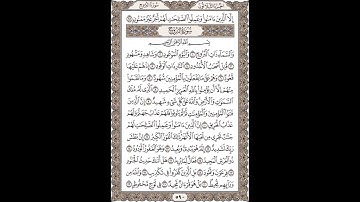 الجزء الثلاثون سورة البروج
إِلَّا ٱلَّذِينَ ءَامَنُوا۟ وَعَمِلُوا۟ ٱلصَّٰلِحَٰتِ لَهُمْ أَجْرٌ غَيْرُ مَمْنُونٍۭ ٢٥
سُورَةُ البُرُوجِ
بِسْمِ ٱللَّهِ ٱلرَّحْمَٰنِ ٱلرَّحِيمِ
وَٱلسَّمَآءِ ذَاتِ ٱلْبُرُوجِ ١ وَٱلْيَوْمِ ٱلْمَوْعُودِ ٢ وَشَاهِدٍ وَمَشْهُودٍ ٣
قُتِلَ أَصْحَٰبُ ٱلْأُخْدُودِ ٤ ٱلنَّارِ ذَاتِ ٱلْوَقُودِ ٥ إِذْ هُمْ عَلَيْهَا
قُعُودٌ ٦ وَهُمْ عَلَىٰ مَا يَفْعَلُونَ بِٱلْمُؤْمِنِينَ شُهُودٌ ٧ وَمَا نَقَمُوا۟
مِنْهُمْ إِلَّآ أَن يُؤْمِنُوا۟ بِٱللَّهِ ٱلْعَزِيزِ ٱلْحَمِيدِ ٨ ٱلَّذِى لَهُۥ مُلْكُ
ٱلسَّمَٰوَٰتِ وَٱلْأَرْضِ وَٱللَّهُ عَلَىٰ كُلِّ شَىْءٍ شَهِيدٌ ٩ إِنَّ ٱلَّذِينَ
فَتَنُوا۟ ٱلْمُؤْمِنِينَ وَٱلْمُؤْمِنَٰتِ ثُمَّ لَمْ يَتُوبُوا۟ فَلَهُمْ عَذَابُ جَهَنَّمَ
وَلَهُمْ عَذَابُ ٱلْحَرِيقِ ١٠ إِنَّ ٱلَّذِينَ ءَامَنُوا۟ وَعَمِلُوا۟ ٱلصَّٰلِحَٰتِ لَهُمْ
جَنَّٰتٌ تَجْرِى مِن تَحْتِهَا ٱلْأَنْهَٰرُ ذَٰلِكَ ٱلْفَوْزُ ٱلْكَبِيرُ ١١ إِنَّ بَطْشَ
رَبِّكَ لَشَدِيدٌ ١٢ إِنَّهُۥ هُوَ يُبْدِئُ وَيُعِيدُ ١٣ وَهُوَ ٱلْغَفُورُ ٱلْوَدُودُ ١٤
ذُو ٱلْعَرْشِ ٱلْمَجِيدُ ١٥ فَعَّالٌ لِّمَا يُرِيدُ ١٦ هَلْ أَتَىٰكَ حَدِيثُ ٱلْجُنُودِ ١٧
فِرْعَوْنَ وَثَمُودَ ١٨ بَلِ ٱلَّذِينَ كَفَرُوا۟ فِى تَكْذِيبٍ ١٩ وَٱللَّهُ مِن
وَرَآئِهِم مُّحِيطٌۢ ٢٠ بَلْ هُوَ قُرْءَانٌ مَّجِيدٌ ٢١ فِى لَوْحٍ مَّحْفُوظٍۭ ٢٢
٥٩٠